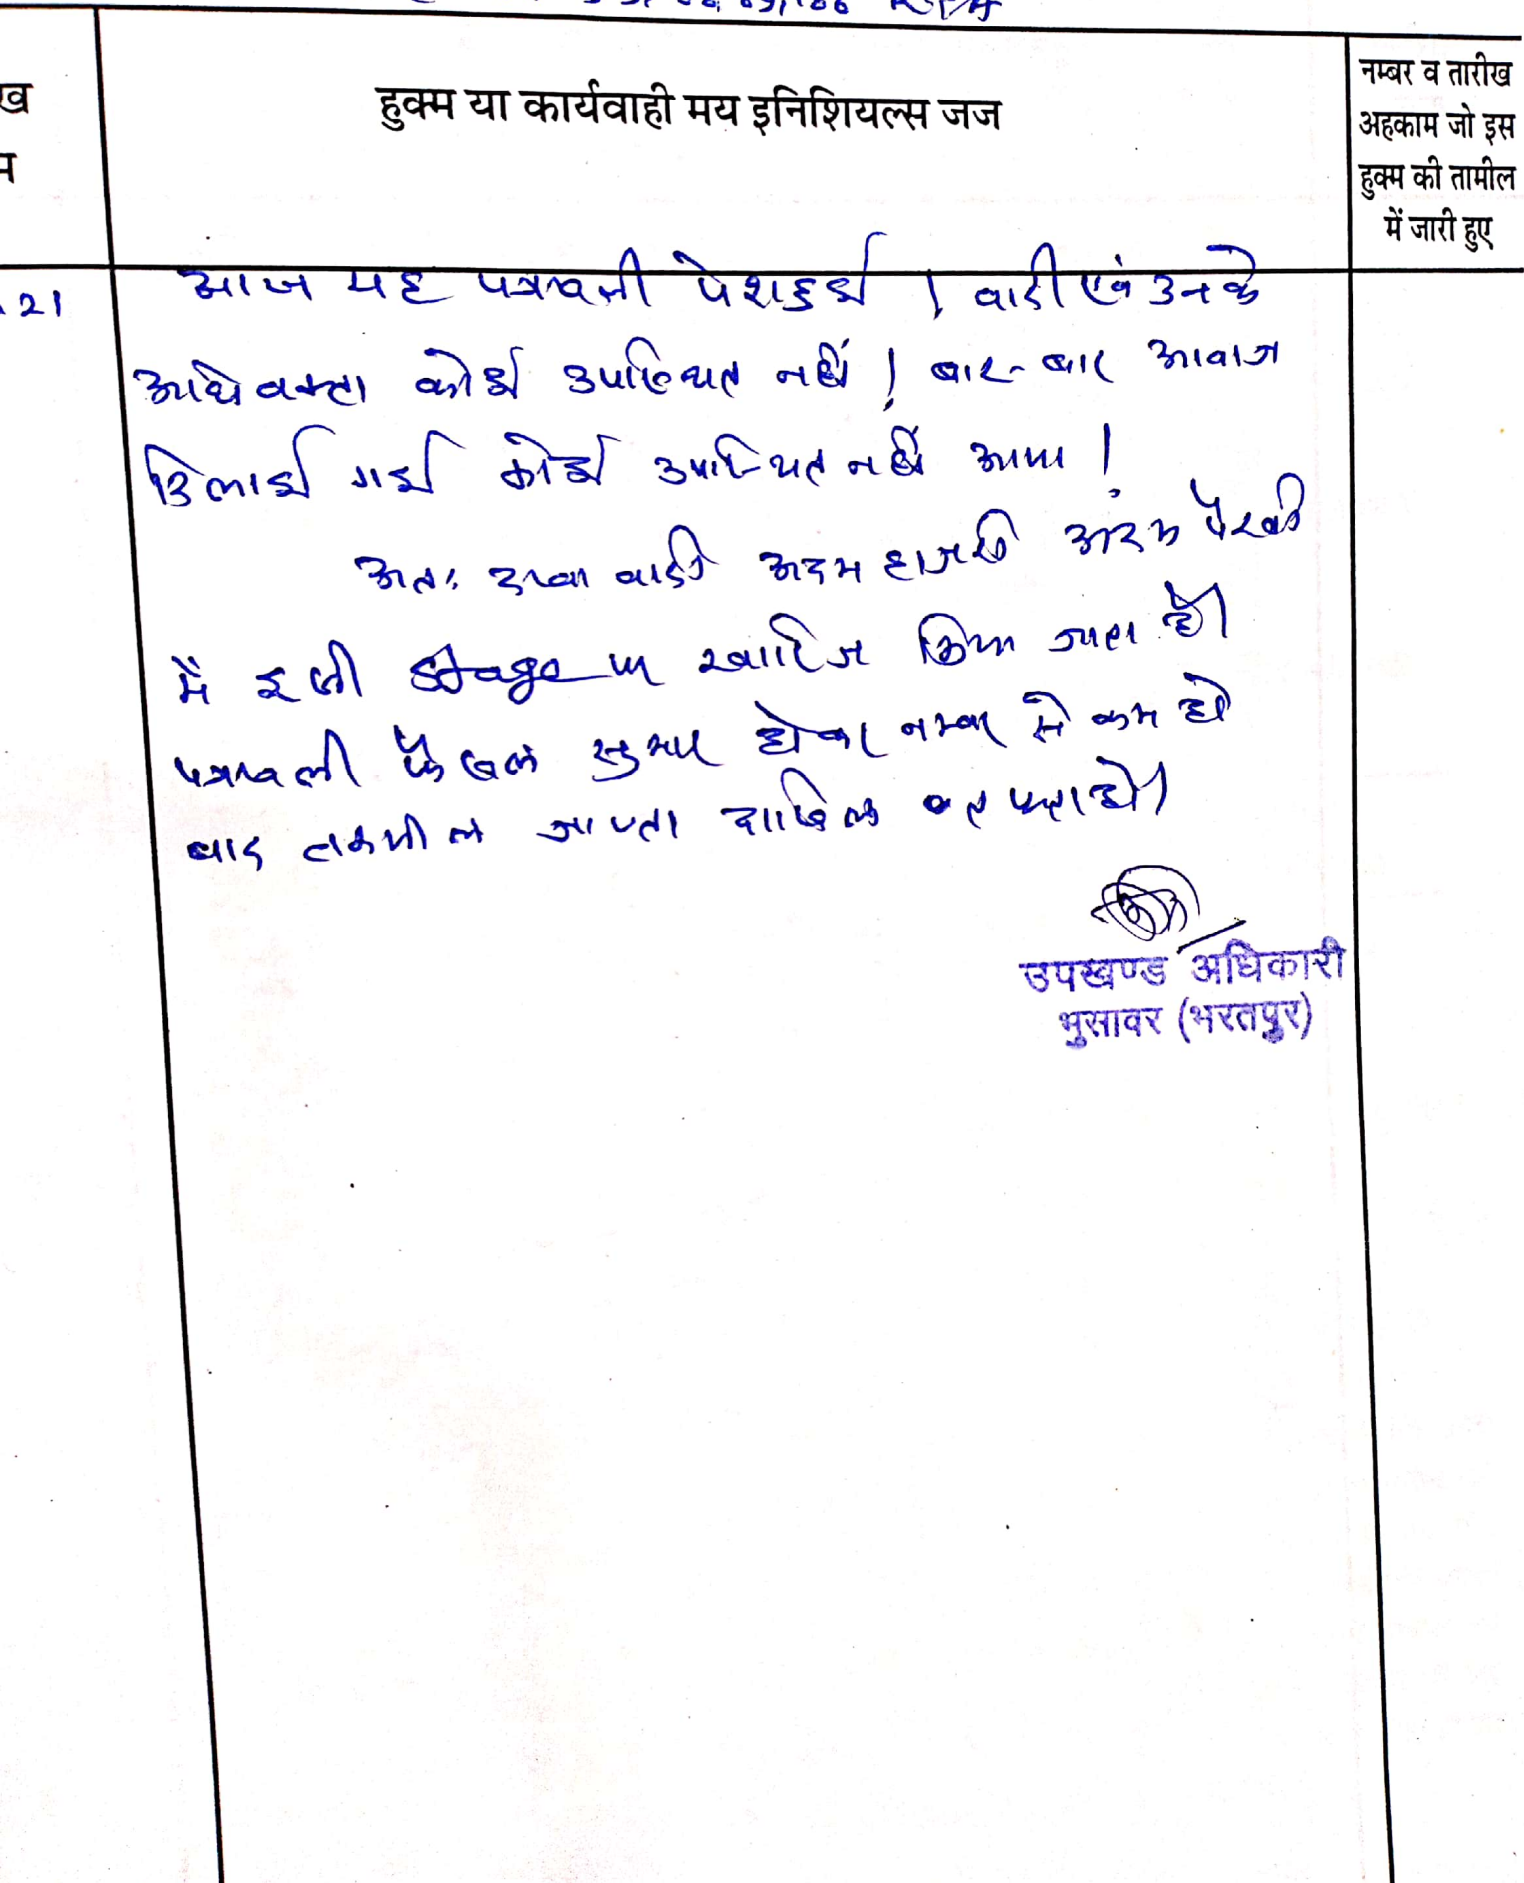 ख
हुक्म या कार्यवाही मय इनिशियल्स जज
नम्बर व तारीख
अहकाम जो इस
हुक्म की तामील
में जारी हुए
21
आज यह पत्रावली पेश हुई । वादी एवं उनके
अधिवक्ता कोई उपस्थित नहीं । बार-बार आवाज
दिलाई गई कोई उपस्थित नहीं आया ।
अतः दावा वादी अदम हाजरी अदम पैरवी
में इसी stage पर खारिज किया जाता है।
पत्रावली फैसल सुमार होकर नम्बर से कम हो
बाद तकमील जाप्ता दाखिल दफ्तर हो।
उपखण्ड अधिकारी
भुसावर (भरतपुर)